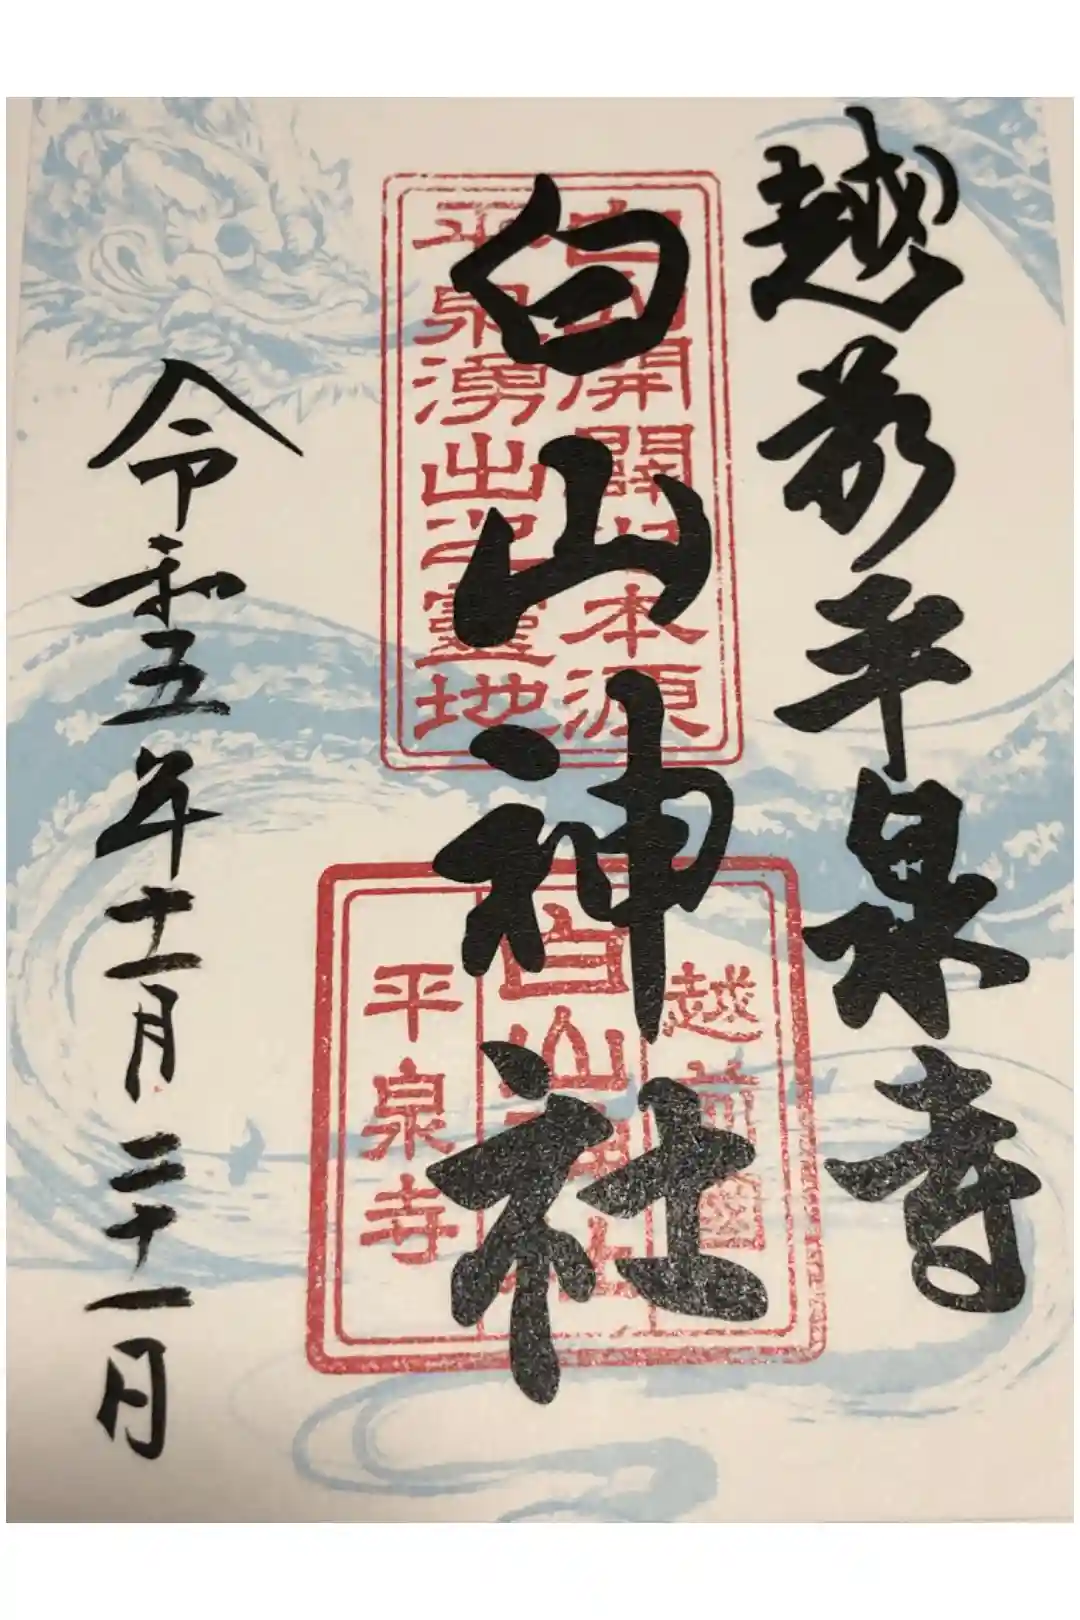 越前平泉寺
白山神社
白山開闢之本源
平泉湧出之靈地
越前國
白山神社
平泉寺
令和五年十一月二十一日